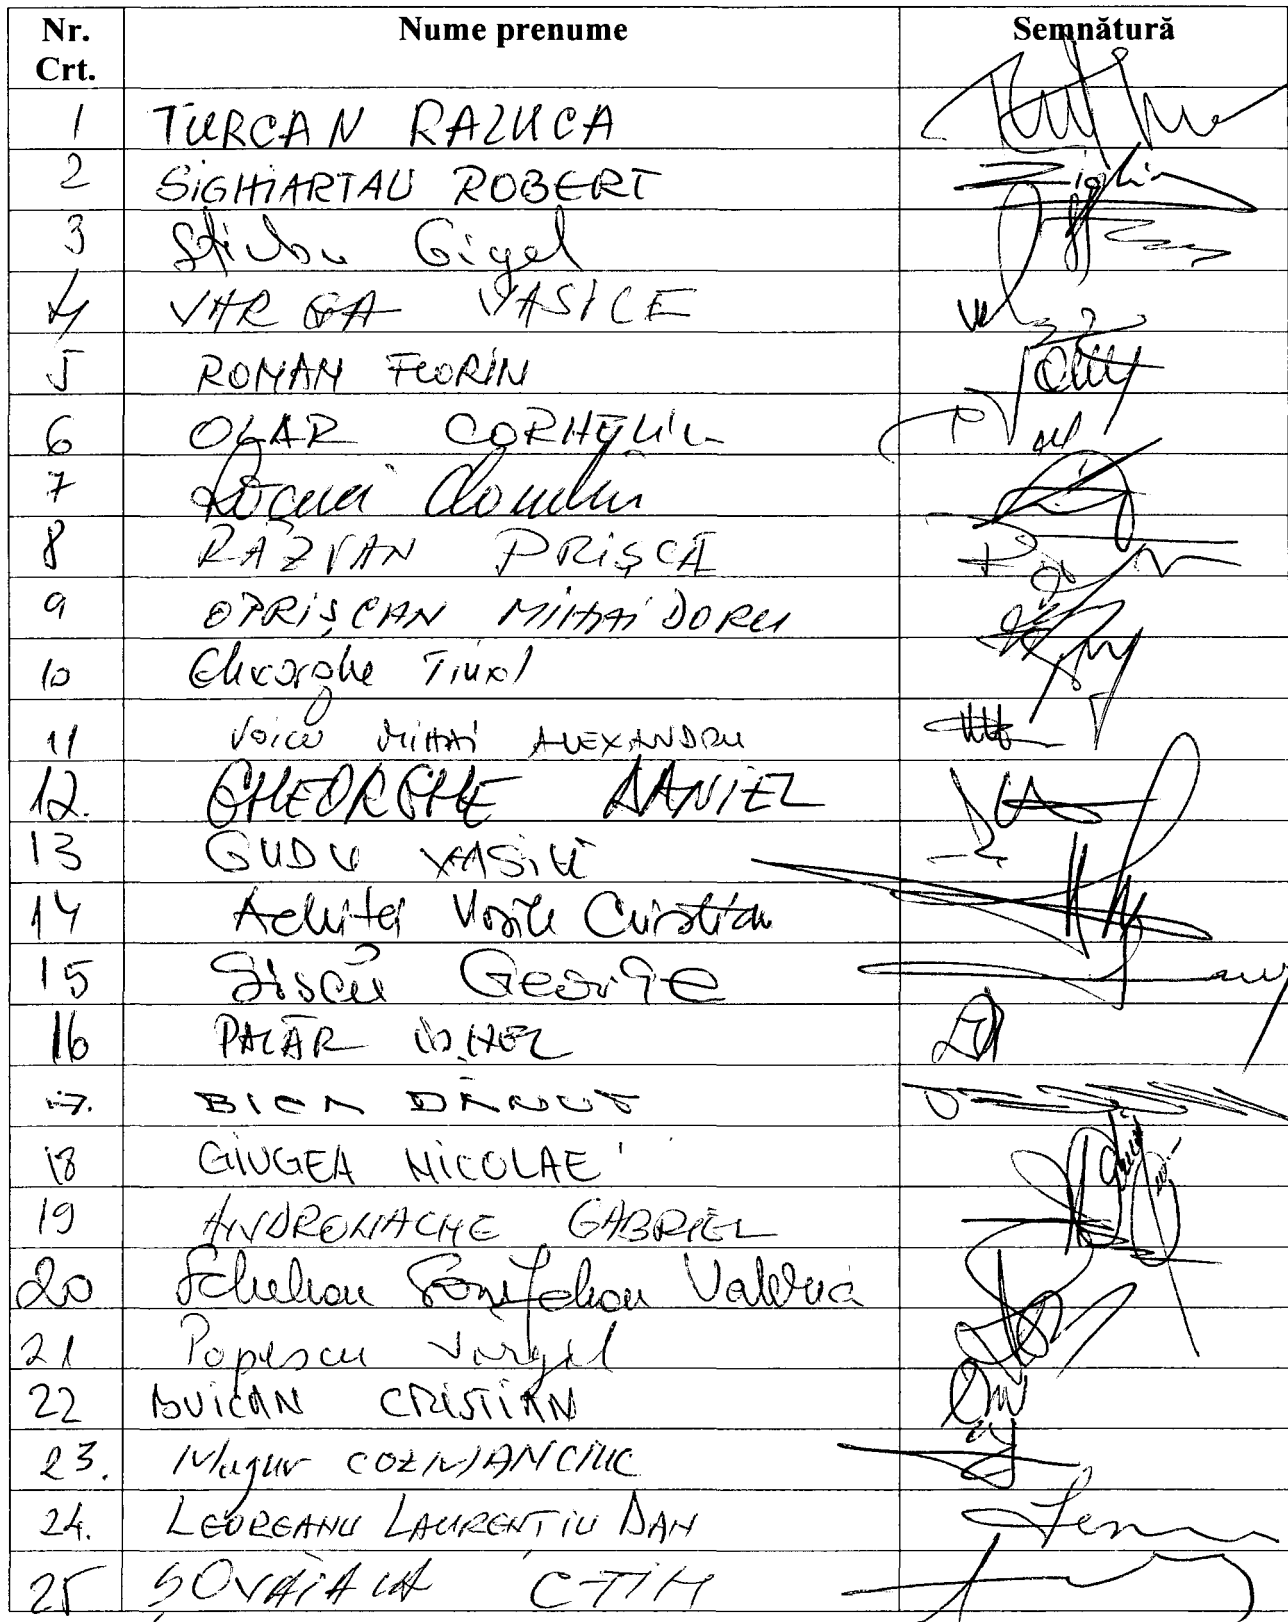 Nr. Crt. Nume prenume Semnătură
1 TURCAN RALUCA
2 SIGHIARTAU ROBERT
3 Știrbu Gigel
4 VARGA VASILE
5 ROMAN FLORIN
6 OLAR CORNELIU
7
8 RAZVAN PRIȘCĂ
9 OPRIȘCAN MIHAI DORU
10 Gheorghe Tinel
11 VOICU MIHAI ALEXANDRU
12. GHEORGHE DANIEL
13 GUDU VASILE
14 Achiței Vasile Cristian
15 Șișcu George
16 PALĂR IONEL
17. BICA DĂNUȚ
18 GIUGEA NICOLAE
19 ANDRONACHE GABRIEL
20 Schelean Valeria
21 Popescu Virgil
22 BUICAN CRISTIAN
23. Mugur COZMANCIUC
24. LEOREANU LAURENȚIU DAN
25 ȘOVĂIALĂ